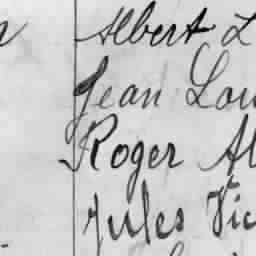 Albert L
Jean Lou
Roger Al
Jules Vic